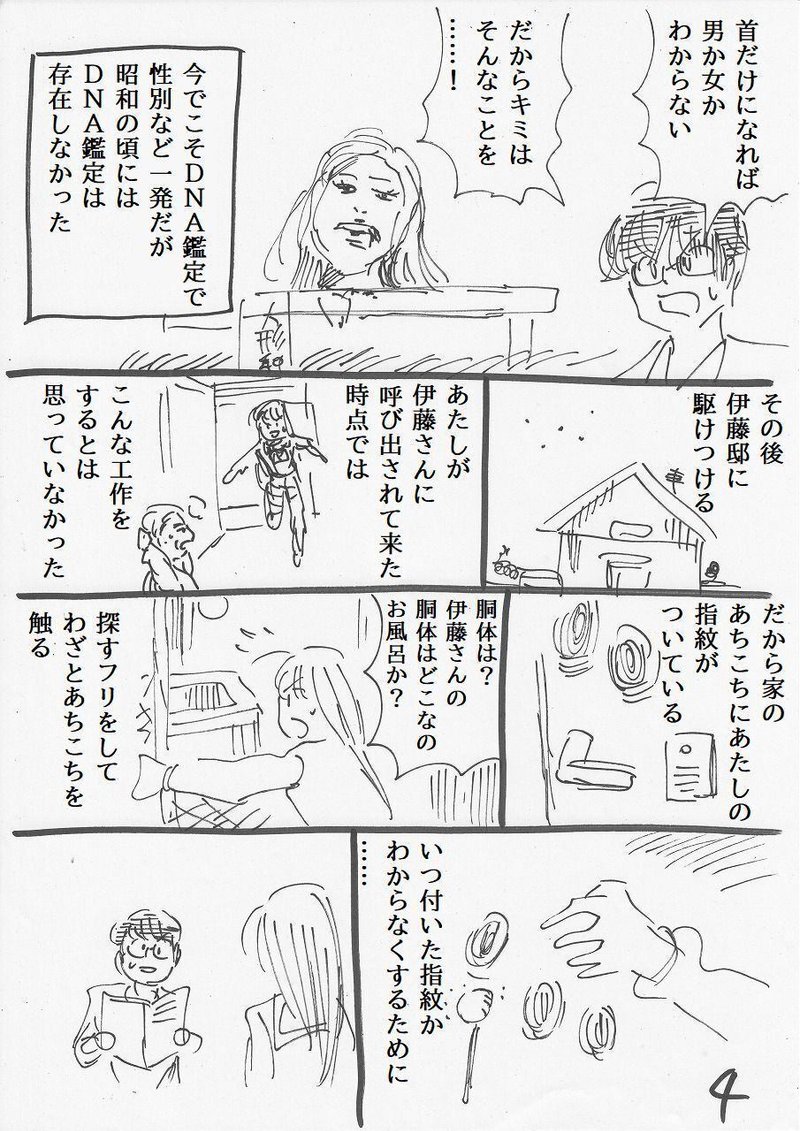 首だけになれば
男か女か
わからない
だからキミは
そんなことを
……！
今でこそＤＮＡ鑑定で
性別など一発だが
昭和の頃には
ＤＮＡ鑑定は
存在しなかった
その後
伊藤邸に
駆けつける
あたしが
伊藤さんに
呼び出されて来た
時点では
こんな工作を
するとは
思っていなかった
だから家の
あちこちにあたしの
指紋が
ついている
胴体は？
伊藤さんの
胴体はどこなの
お風呂か？
探すフリをして
わざとあちこちを
触る
いつ付いた指紋か
わからなくするために
……
4